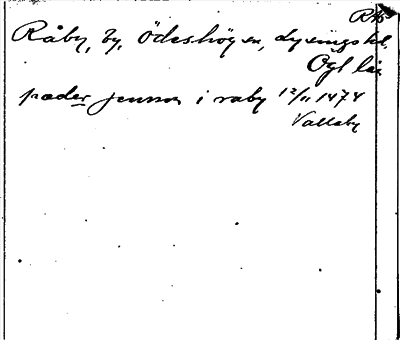 Råby, by, Ödeshög sn, Lysings hd,
Ögl län
pæder jensson i raby 12/11 1474
Vallaby